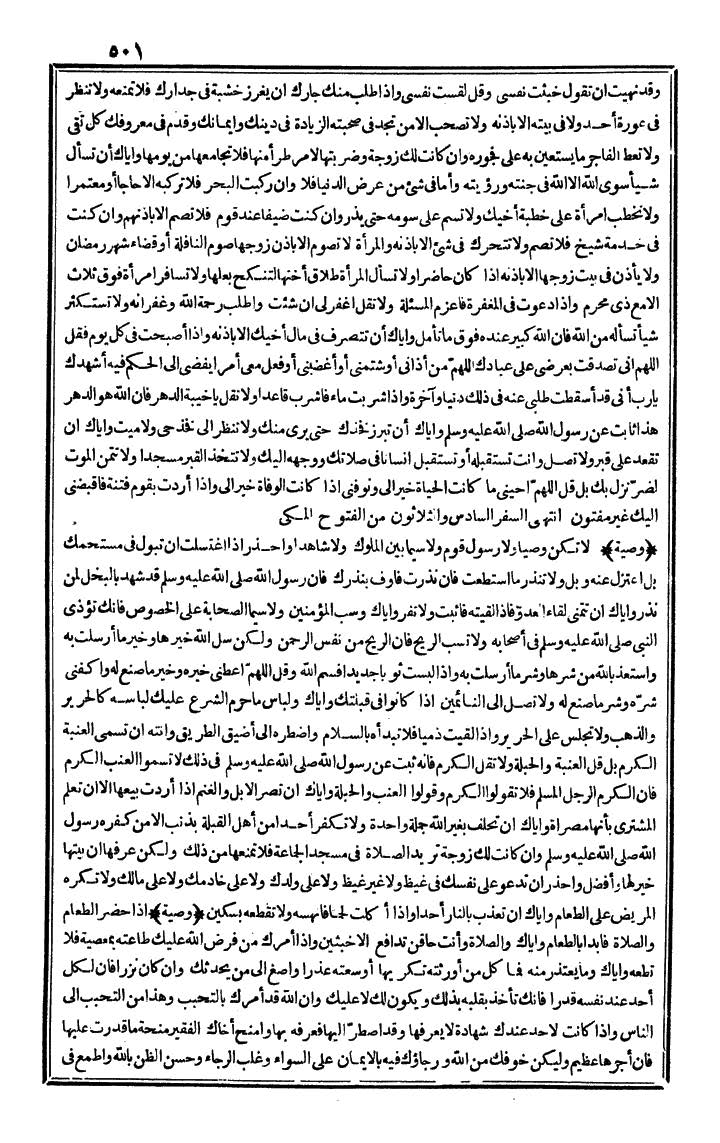 ٥٠١
وقد نهيت ان تقول خبثت نفسي وقل لقست نفسي واذا طلب منك جارك ان يغرز خشبة في جدارك فلا تمنعه ولا تنظر
في عورة أحد ولا في بيته الا باذنه ولا تصحب الا من تجد في صحبته الزيادة في دينك وايمانك وقدم في معروفك كل تقي
ولا تعط الفاجر ما يستعين به على فجوره وان كانت لك زوجة وضربتها لامر طرأ منها فلا تجامعها من يومها واياك أن تسأل
شيأ سوى الله الا الله في جنته ورؤيته وأما في شئ من عرض الدنيا فلا وان ركبت البحر فلا تركبه الا حاجا أو معتمرا
ولا تخطب امرأة على خطبة أخيك ولا تسم على سومه حتى يذر وان كنت ضيفا عند قوم فلا تصم الا باذنهم وان كنت
في خدمة شيخ فلا تصم ولا تتحرك في شئ الا باذنه والمرأة لا تصوم الا باذن زوجها صوم النافلة أو قضاء شهر رمضان
ولا يأذن في بيت زوجها الا باذنه اذا كان حاضرا ولا تسأل المرأة طلاق أختها لتنكح بعلها ولا تسافر امرأة فوق ثلاث
الا مع ذي محرم واذا دعوت في المغفرة فاعزم المسئلة ولا تقل اغفر لي ان شئت واطلب رحمة الله وغفرانه ولا تستكثر
شيأ تسأله من الله فان الله كبير عنده فوق ما تأمل واياك أن تتصرف في مال أخيك الا باذنه واذا أصبحت في كل يوم فقل
اللهم اني تصدقت بعرضي على عبادك اللهم من أذاني أو شتمني أو أغضبني أو فعل معي أمرا يفضي الى الحكم فيه أشهدك
يا رب أني قد أسقطت طلبي عنه في ذلك دنيا وآخرة واذا شربت ماء فاشرب قاعدا ولا تقل يا خيبة الدهر فان الله هو الدهر
هذا ثابت عن رسول الله صلى الله عليه وسلم واياك أن تبرز فخذك حتى يرى منك ولا تنظر الى فخذ حي ولا ميت واياك ان
تقعد على قبر ولا تصل وانت تستقبله أو تستقبل انسانا في صلاتك ووجهه اليك ولا تتخذ القبر مسجدا ولا تتمن الموت
لضر نزل بك بل قل اللهم احيني ما كانت الحياة خير الي وتوفني اذا كانت الوفاة خير الي واذا أردت بقوم فتنة فاقبضني
اليك غير مفتون انتهى السفر السادس والثلاثون من الفتوح المكي
﴿وصية﴾ لا تكن وصيا ولا رسول قوم ولا سيما بين الملوك ولا شاهدا واحذر اذا اغتسلت ان تبول في مستحمك
بل اعتزل عنه وبل ولا تنذر ما استطعت فان نذرت فاوف بنذرك فان رسول الله صلى الله عليه وسلم قد شهد بالبخل لمن
نذر واياك ان تتمنى لقاء العدو فاذا لقيته فاثبت ولا تفر واياك وسب المؤمنين ولا سيما الصحابة على الخصوص فانك تؤذي
النبي صلى الله عليه وسلم في أصحابه ولا تسب الريح فان الريح من نفس الرحمن ولكن سل الله خيرها وخير ما أرسلت به
واستعذ بالله من شرها وشر ما أرسلت به واذا لبست ثوبا جديدا فسم الله وقل اللهم أعطني خيره وخير ما صنع له واكفني
شره وشر ما صنع له ولا تصل الى النائمين اذا كانوا في قبلتك واياك ولباس ما حرم الشرع عليك لباسه كالحرير
والذهب ولا تجلس على الحرير واذا لقيت ذميا فلا تبدأه بالسلام واضطره الى أضيق الطريق وانته ان تسمي العنبة
الكرم بل قل العنبة والحبلة ولا تقل الكرم فانه ثبت عن رسول الله صلى الله عليه وسلم في ذلك لا تسموا العنب الكرم
فان الكرم الرجل المسلم فلا تقولوا الكرم وقولوا العنب والحبلة واياك ان تصر الابل والغنم اذا أردت بيعها الا ان تعلم
المشتري بأنها مصراة واياك ان تحلف بغير الله جملة واحدة ولا تكفر أحدا من أهل القبلة بذنب الا من كفره رسول
الله صلى الله عليه وسلم وان كانت لك زوجة تريد الصلاة في مسجد الجماعة فلا تمنعها من ذلك ولكن عرفها ان بيتها
خير لها وأفضل واحذر ان تدعو على نفسك في غيظ ولا غير غيظ ولا على ولدك ولا على خادمك ولا على مالك ولا تكره
المريض على الطعام واياك ان تعذب بالنار أحدا واذا أكلت لحما فانهسه ولا تقطعه بسكين ﴿وصية﴾ اذا حضر الطعام
والصلاة فابدأ بالطعام واياك والصلاة وأنت حاقن تدافع الاخبثين واذا أمرك من فرض الله عليك طاعته بمعصية فلا
تطعه واياك وما يعتذر منه فما كل من أورثته نكرا بها أوسعته عذرا واصغ الى من يحدثك وان كان نزرا فان لكل
أحد عند نفسه قدرا فانك تأخذ بقلبه بذلك ويكون لك لا عليك وان الله قد أمرك بالتحبب وهذا من التحبب الى
الناس واذا كانت لاحد عندك شهادة لا يعرفها وقد اضطر اليها فعرفه بها وامنح أخاك الفقير منحة ما قدرت عليها
فان أجرها عظيم وليكن خوفك من الله ورجاؤك فيه بالايمان على السواء وغلب الرجاء وحسن الظن بالله واطمع في